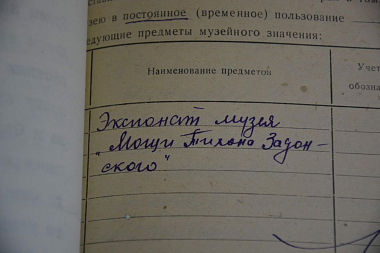 зею в постоянное (временное) пользование
едующие предметы музейного значения:
Наименование предметов
Учет
обозна
Экспонат музея
„Мощи Тихона Задон-
ского"